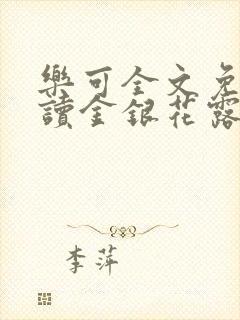 樂可全文免
讀金銀花露
李萍